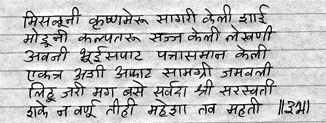 मिसळूनी कृष्णमेरू सागरी केली शाई
मोडूनी कल्पतरू सज्ज केली लेखणी
अवनी भूईसपाट पत्रासमान केली
एकत्र अशी अफाट सामग्री जमवली
लिहू जरी मग बसे सर्वदा श्री सरस्वती
शके न वर्णू तीही महेशा तव महती ॥३२॥